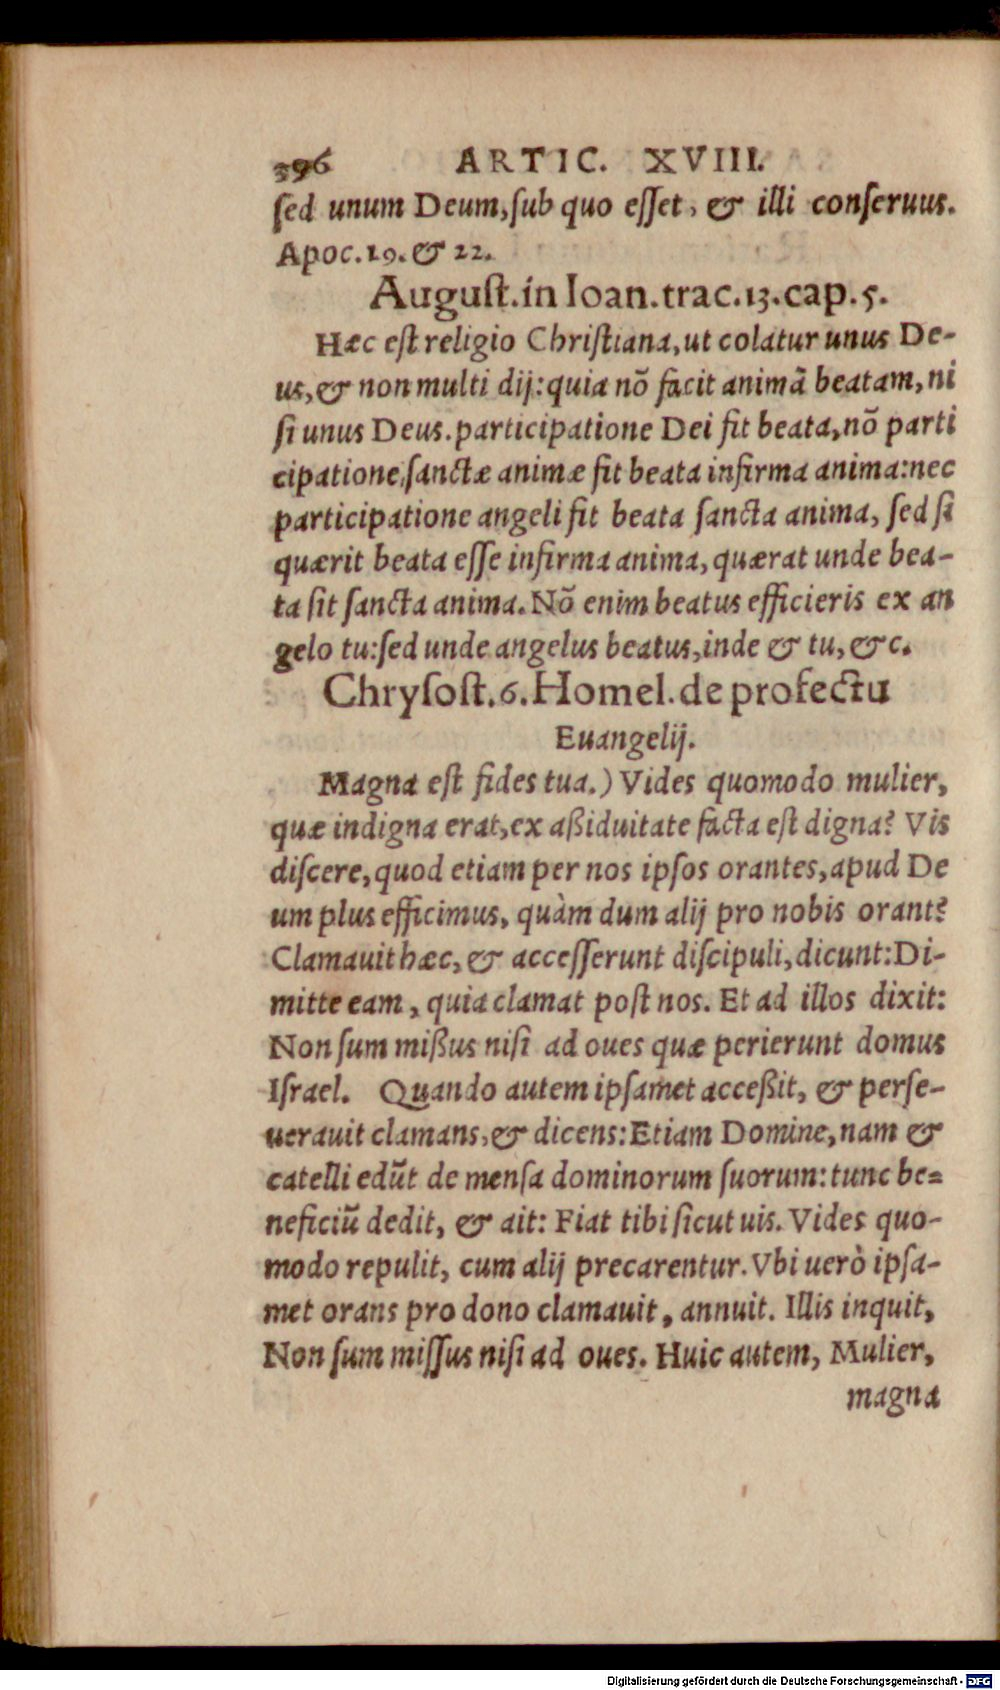 396 ARTIC. XVIII.
ſed unum Deum, ſub quo eſſet, & illi conſeruus.
Apoc. 19. & 22.
Auguſt. in Ioan. trac. 13. cap. 5.
Hæc eſt religio Chriſtiana, ut colatur unus De-
us, & non multi dij: quia nõ facit animã beatam, ni
ſi unus Deus. participatione Dei fit beata, nõ parti
cipatione, ſanctæ animæ fit beata infirma anima: nec
participatione angeli fit beata ſancta anima, ſed ſi
quærit beata eſſe infirma anima, quærat unde bea-
ta ſit ſancta anima. Nõ enim beatus efficieris ex an
gelo tu: ſed unde angelus beatus, inde & tu, &c.
Chryſoſt. 6. Homel. de profectu
Euangelij.
Magna eſt fides tua.) Vides quomodo mulier,
quæ indigna erat, ex aßiduitate facta eſt digna? Vis
diſcere, quod etiam per nos ipſos orantes, apud De
um plus efficimus, quàm dum alij pro nobis orant?
Clamauit hæc, & acceſſerunt diſcipuli, dicunt: Di-
mitte eam, quia clamat poſt nos. Et ad illos dixit:
Non ſum mißus niſi ad oues quæ perierunt domus
Iſrael. Quando autem ipſamet acceßit, & perſe-
uerauit clamans, & dicens: Etiam Domine, nam &
catelli edũt de menſa dominorum ſuorum: tunc be=
neficiũ dedit, & ait: Fiat tibi ſicut uis. Vides quo-
modo repulit, cum alij precarentur. Vbi uerò ipſa-
met orans pro dono clamauit, annuit. Illis inquit,
Non ſum miſſus niſi ad oues. Huic autem, Mulier,
magna
Digitalisierung gefördert durch die Deutsche Forschungsgemeinschaft - DFG